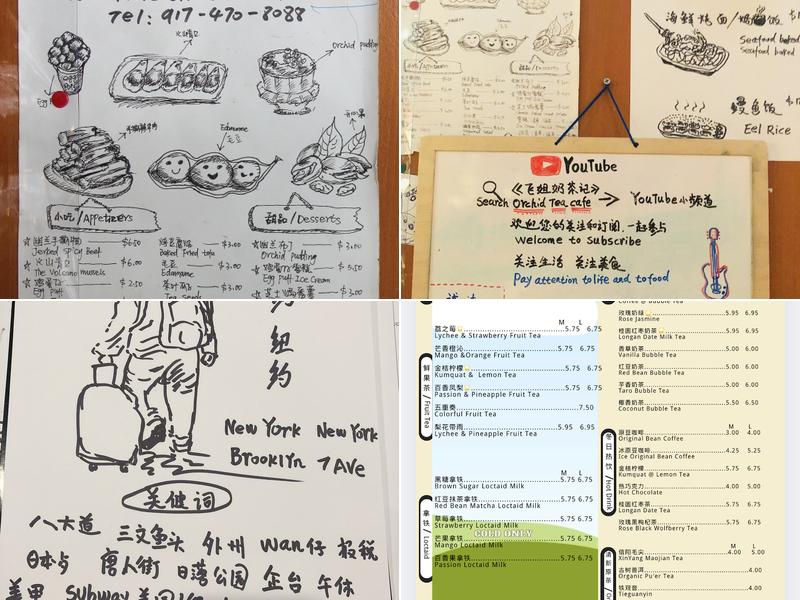 Tel: 917-470-8088
火山青口
Orchid pudding
Egg
手撕辣牛肉
Edamame
毛豆
开心果
小吃/Appetizers
甜品/Desserts
幽兰手撕牛肉 $6.50
Jerked Spicy Beef
火山青口 $6.00
The Volcano mussels
鸡蛋仔 $2.50
Egg puff
$3.00
Baked Fried tofu
毛豆 $3.00
Edamame
$3.00
幽兰布丁 $3.00
Orchid pudding
鸡蛋仔雪糕 $5.50
Egg puff Ice Cream
$3.00
海鲜焗面/
Seafood baked
Seafood baked
鳗鱼饭
Eel Rice
YouTube
《飞姐奶茶记》
Search Orchid Tea cafe → YouTube小频道
欢迎您的关注和订阅.一起参与
welcome to Subscribe
关注生活 关注美食
Pay attention to life and to food
纽
约
New York New York
Brooklyn 7 Ave
关健词
八大道 三文鱼头 外州 Wan仔 报税
日本与 唐人街 日落公园 企台 午休
Subway
M L
荔之莓 5.75 6.75
Lychee & Strawberry Fruit Tea
芒香橙沁 5.75 6.75
Mango &Orange Fruit Tea
金桔柠檬 5.75 6.75
Kumquat & Lemon Tea
百香凤梨 5.75 6.75
Passion & Pineapple Fruit Tea
五重奏 7.50
Colorful Fruit Tea
梨花带雨 5.95 6.95
Lychee & Pineapple Fruit Tea
鲜果茶/Fruit Tea
M L
黑糖拿铁 5.75 6.75
Brown Sugar Loctaid Milk
红豆抹茶拿铁 5.75 6.75
Red Bean Matcha Loctaid Milk
草莓拿铁 5.75 6.75
Strawberry Loctaid Milk
COLD ONLY
芒果拿铁 5.75 6.75
Mango Loctaid Milk
百香果拿铁 5.75 6.75
Passion Loctaid Milk
拿铁/Loctaid
Coffee @ Bubble Tea
玫瑰奶绿 5.95 6.95
Rose Jasmine
桂圆红枣奶茶 5.95 6.95
Longan Date Milk Tea
香草奶茶 5.00 6.00
Vanilla Bubble Tea
红豆奶茶 5.00 6.00
Red Bean Bubble Tea
芋香奶茶 5.00 6.00
Taro Bubble Tea
椰香奶茶 5.50 6.50
Coconut Bubble Tea
M L
原豆咖啡 3.00 4.00
Original Bean Coffee
冰原豆咖啡 4.25 5.25
Ice Original Bean Coffee
金桔柠檬 5.75 6.75
Kumquat @ Lemon Tea
热巧克力 4.00 5.00
Hot Chocolate
桂圆红枣茶 5.75 6.75
Longan Date Tea
玫瑰黑枸杞茶 5.75 6.75
Rose Black Wolfberry Tea
冬日热饮/Hot Drink
M L
信阳毛尖 4.00 5.00
XinYang Maojian Tea
古树普洱 4.00
Organic Pu'er Tea
铁观音 4.00
Tieguanyin
清新原茶